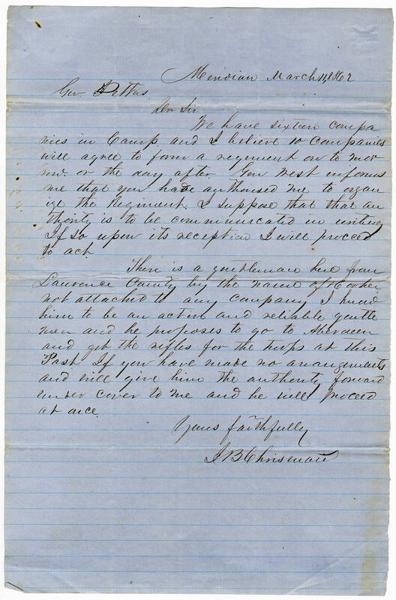 Meridian March 11, 1862
Gov Pettus
Dr Sir
We have sixteen compa
nies in Camp and I believe 10 companies
will agree to form a regiment on to mor
row or the day after Gen West informs
me that you have authorised me to organ
ize the Regiment. I suppose that that au
thority is to be communicated in writing
If so upon its reception I will proceed
to act.
There is a gentleman here from
Lawrence County by the name of
not attached to any company I know
him to be an active and reliable gentle
man and he proposes to go to Aberdeen
and get the rifles for the troops at this
Post. If you have made no arrangements
and will give him the authority forward
under cover to me and he will proceed
at once.
Yours faithfully
J B Chrisman